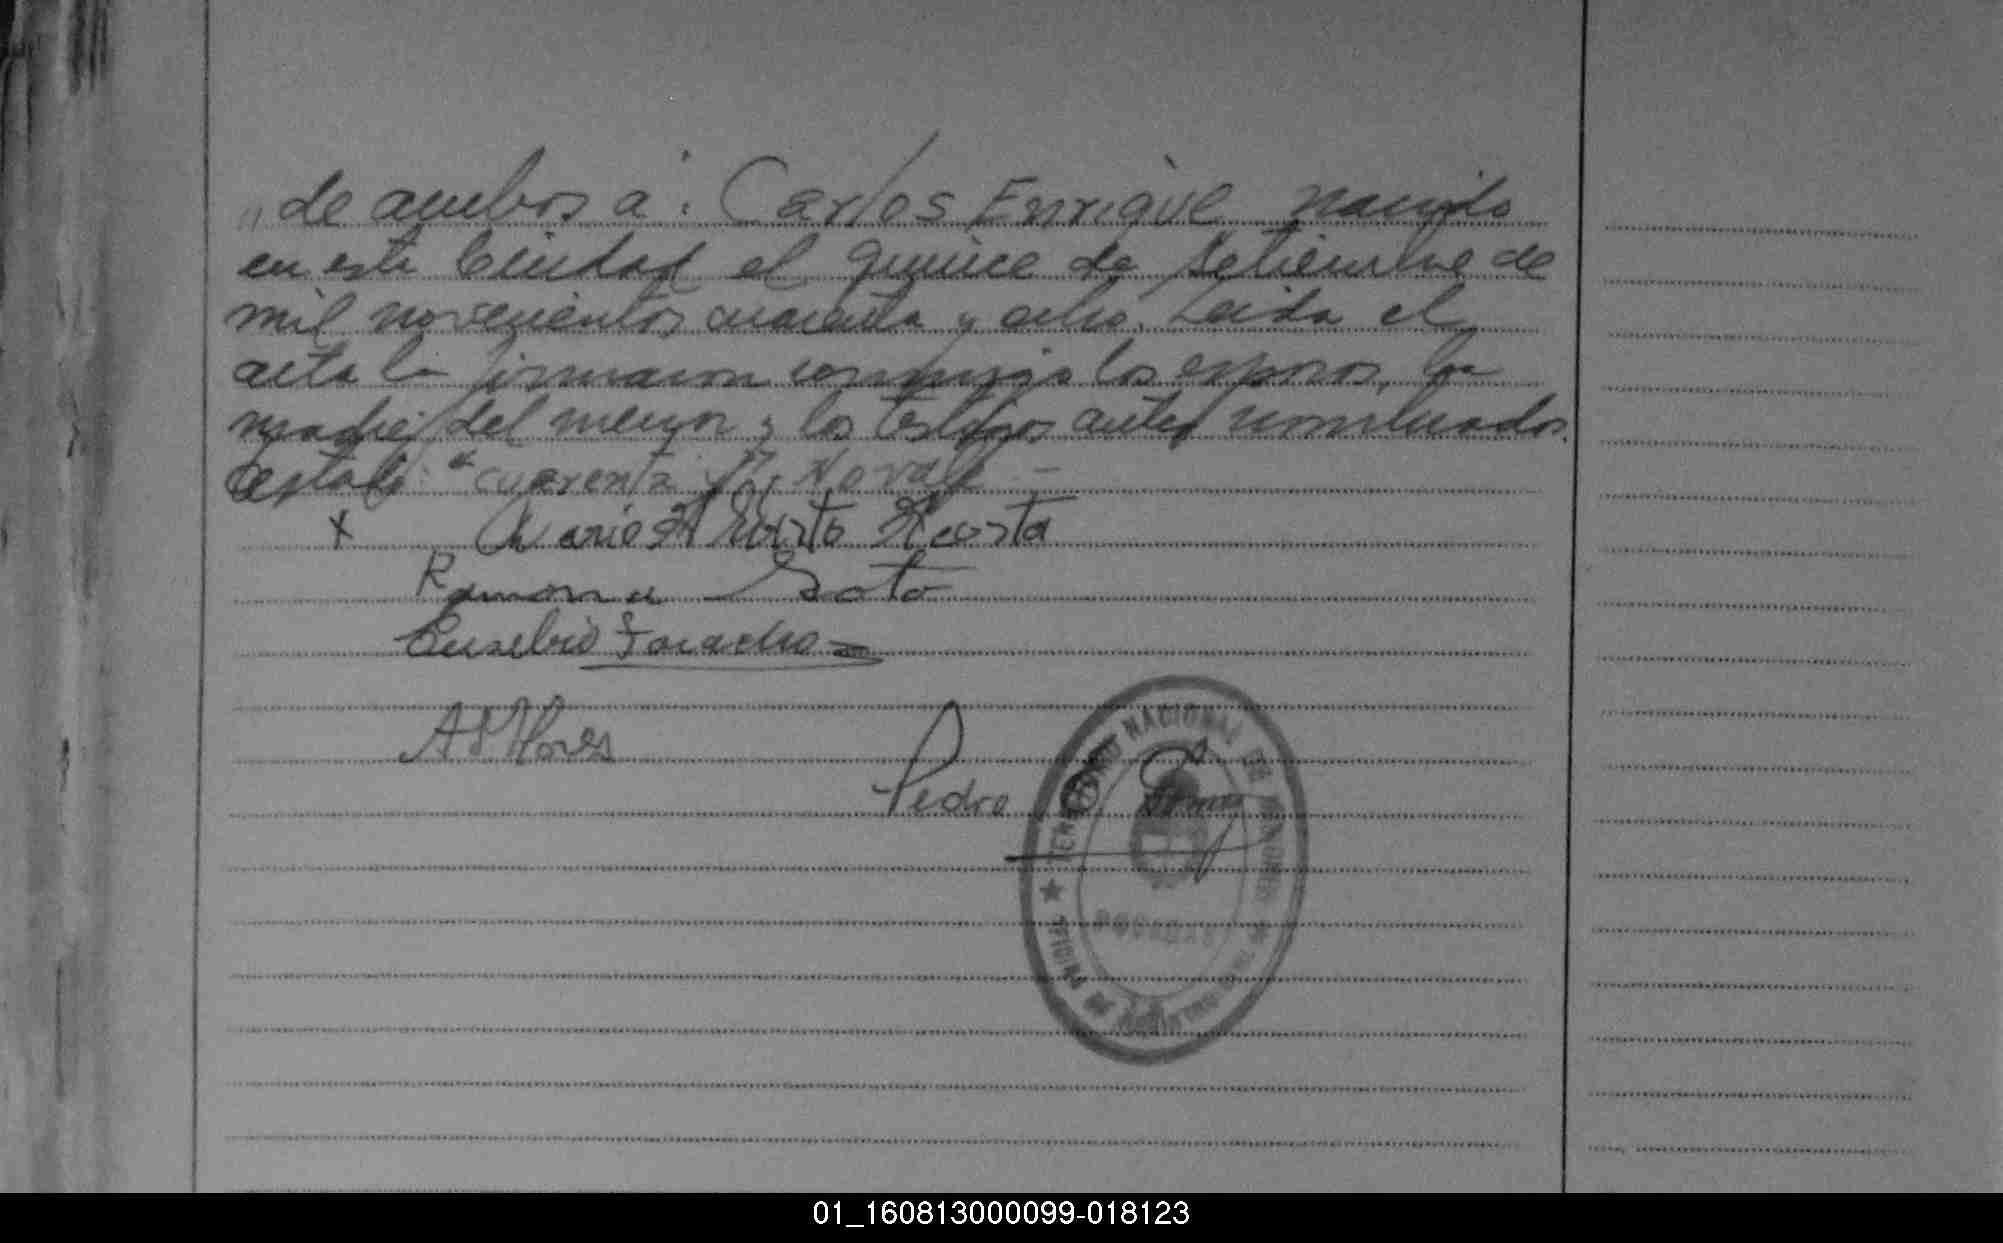 " de ambos a: Carlos Enrique nacido
en esta Ciudad el quince de Setiembre de
mil novecientos cuarenta y ocho. Leida el
acta la firmaron conmigo los esposos, la
madre del menor y los testigos antes nombrados.
Testado: "cuarenta y", No vale -
x Mario Alberto Acosta
Ramona Soto
Eusebio Faracho
A Flores
Pedro
TERRITORIO NACIONAL DE MISIONES
POSADAS